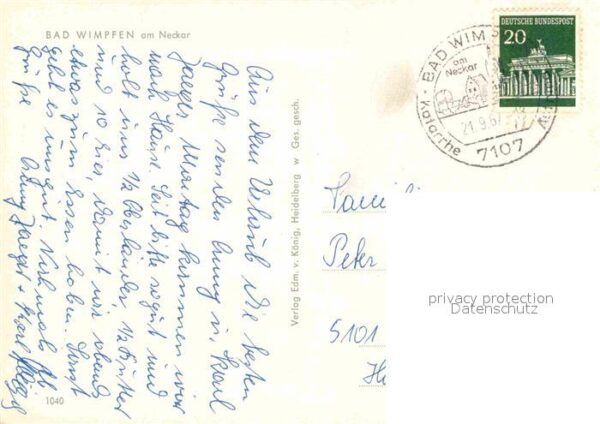 BAD WIMPFEN am Neckar
Aus dem Urlaub die besten
Grüße senden Anny u. Karl
Jaeger. Montag kommen wir
nach Hause. Seit bitte so gut und
holt uns 1/2 Oberländer, 1/2 Butter
und 10 Eier, damit wir abends
etwas zum Essen haben. Sonst
geht es uns gut. Nochmals
Grüße Anny Jaeger + Karl
1040
Verlag Edm. v. König, Heidelberg w Ges. gesch.
DEUTSCHE BUNDESPOST
20
BAD WIMPFEN
am
Neckar
Katarrhe
21.9.67
7107
Familie
Peter
5101
privacy protection
Datenschutz